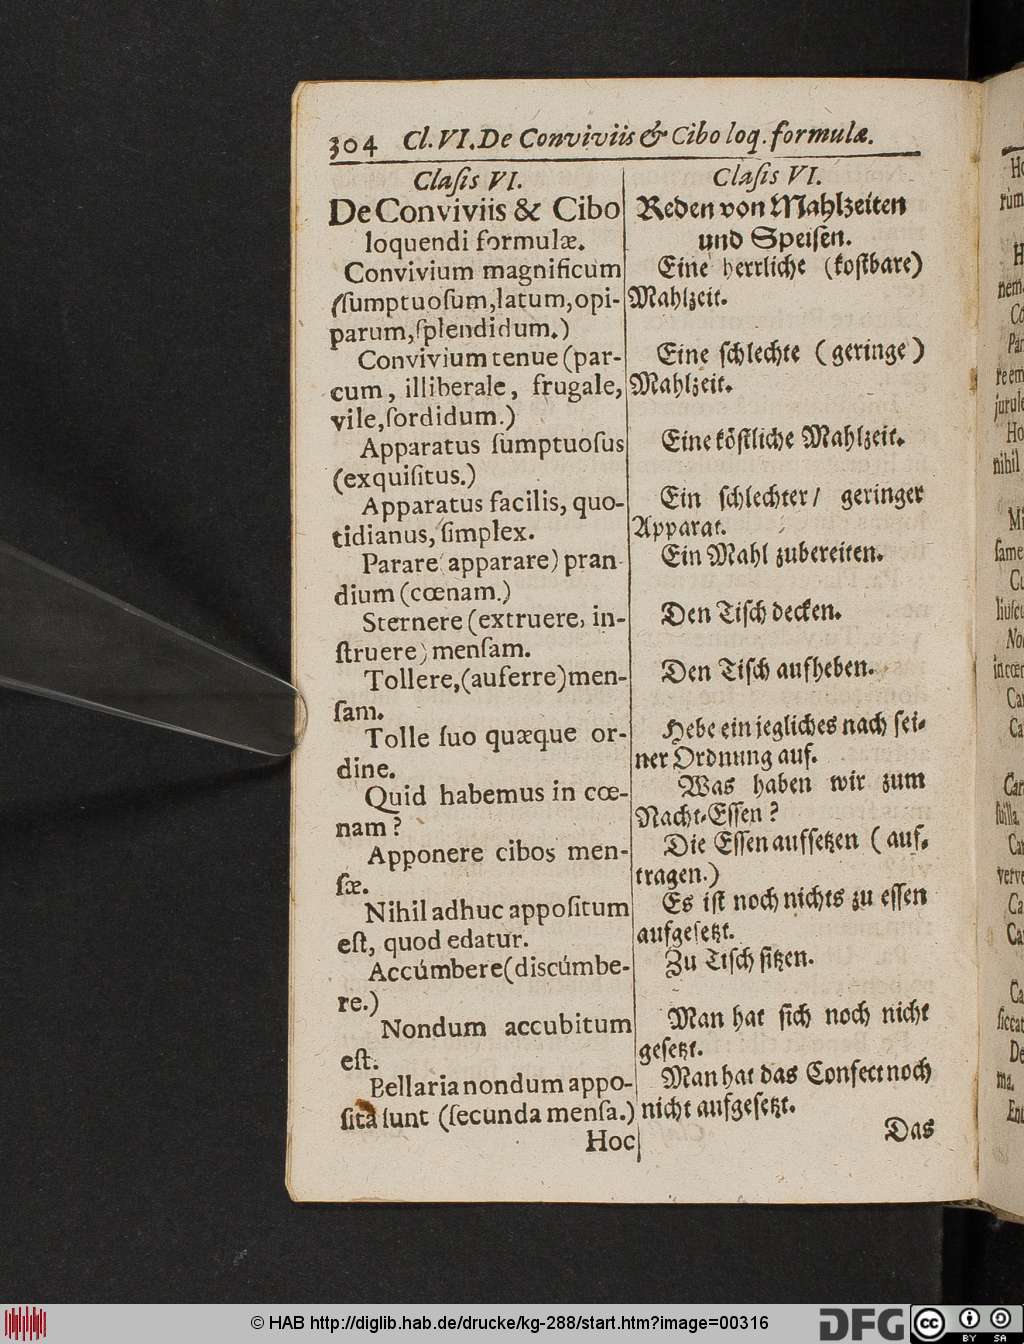 304 Cl. VI. De Conviviis & Cibo loq. formulæ.
Claſis VI.
De Conviviis & Cibo
loquendi formulæ.
Convivium magnificum
(ſumptuoſum, latum, opi-
parum, ſplendidum.)
Convivium tenue (par-
cum, illiberale, frugale,
vile, ſordidum.)
Apparatus ſumptuoſus
(exquiſitus.)
Apparatus facilis, quo-
tidianus, ſimplex.
Parare (apparare) pran-
dium (cœnam.)
Sternere (extruere, in-
ſtruere) menſam.
Tollere, (auferre) men-
ſam.
Tolle ſuo quæque or-
dine.
Quid habemus in cœ-
nam?
Apponere cibos men-
ſæ.
Nihil adhuc appoſitum
eſt, quod edatur.
Accúmbere (discúmbe-
re.)
Nondum accubitum
eſt.
Bellaria nondum appo-
ſita ſunt (ſecunda menſa.)
Hoc
Claſis VI.
Reden von Mahlzeiten
und Speiſen.
Eine herrliche (koſtbare)
Mahlzeit.
Eine ſchlechte (geringe)
Mahlzeit.
Eine köſtliche Mahlzeit.
Ein ſchlechter / geringer
Apparat.
Ein Mahl zubereiten.
Den Tiſch decken.
Den Tiſch aufheben.
Hebe ein jegliches nach ſei-
ner Ordnung auf.
Was haben wir zum
Nacht-Eſſen?
Die Eſſen auffſetzen (auf-
tragen.)
Es iſt noch nichts zu eſſen
aufgeſetzt.
Zu Tiſch ſitzen.
Man hat ſich noch nicht
geſetzt.
Man hat das Confect noch
nicht aufgeſetzt.
Das
© HAB http://diglib.hab.de/drucke/kg-288/start.htm?image=00316
DFG
cc BY SA